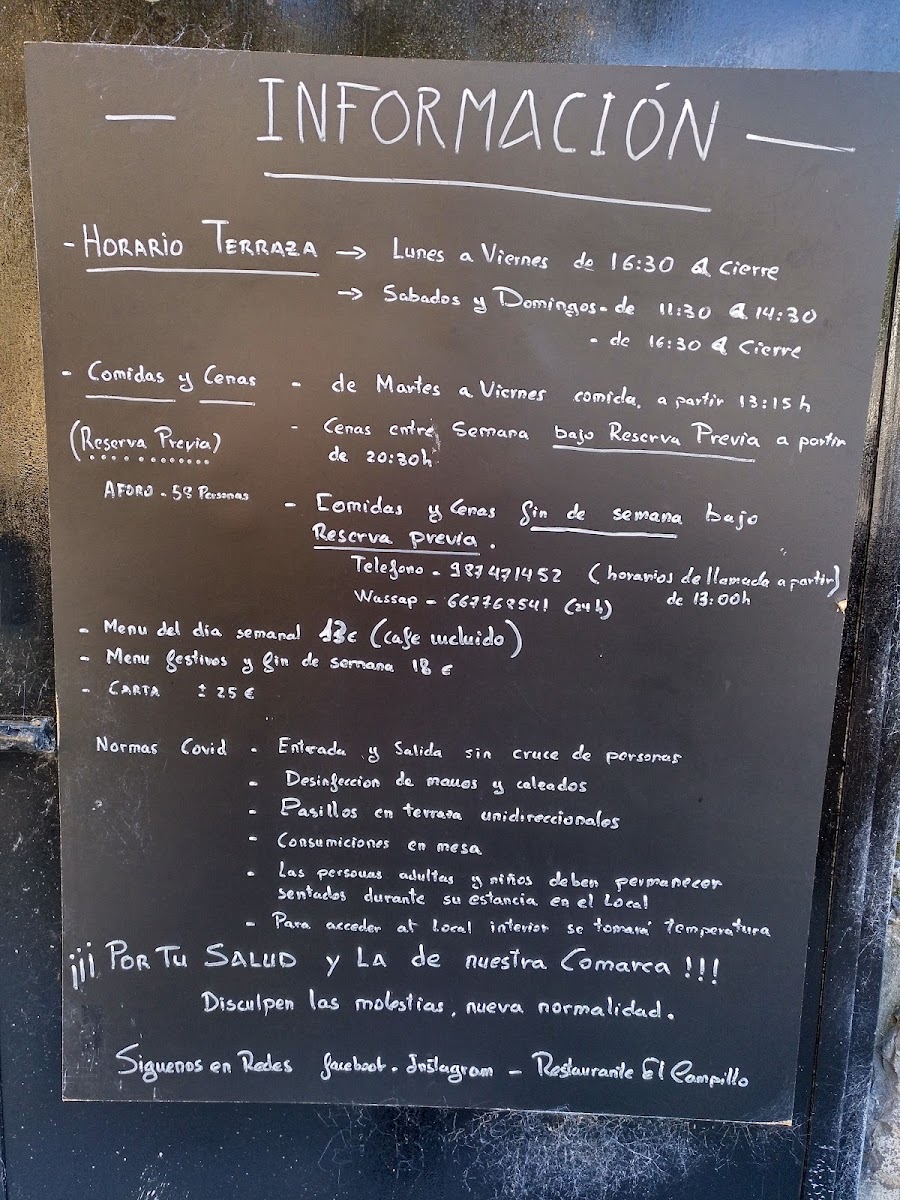 — INFORMACIÓN —
- HORARIO TERRAZA → Lunes a Viernes de 16:30 a Cierre
→ Sabados y Domingos - de 11:30 a 14:30
- de 16:30 a Cierre
- Comidas y Cenas - de Martes a Viernes comida, a partir 13:15 h
(Reserva Previa) - Cenas entre Semana bajo Reserva Previa a partir
de 20:30h
AFORO - 58 Personas
- Comidas y Cenas fin de semana bajo
Reserva previa.
Telefono - 987471452 (horarios de llamada a partir)
de 13:00h
Wassap - 667768541 (24 h)
- Menu del dia semanal 13€ (cafe incluido)
- Menu festivos y fin de semana 18 €
- CARTA ± 25 €
Normas Covid - Entrada y Salida sin cruce de personas
- Desinfeccion de manos y calzados
- Pasillos en terraza unidireccionales
- Consumiciones en mesa
- Las personas adultas y niños deben permanecer
sentados durante su estancia en el Local
- Para acceder al Local interior se tomará temperatura
¡¡¡ POR TU SALUD y LA de nuestra Comarca !!!
Disculpen las molestias, nueva normalidad.
Siguenos en Redes facebook - Instagram - Restaurante El Campillo